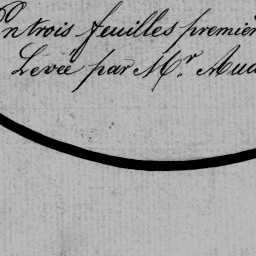 En trois feuilles premièr
Levée par Mr. Aud